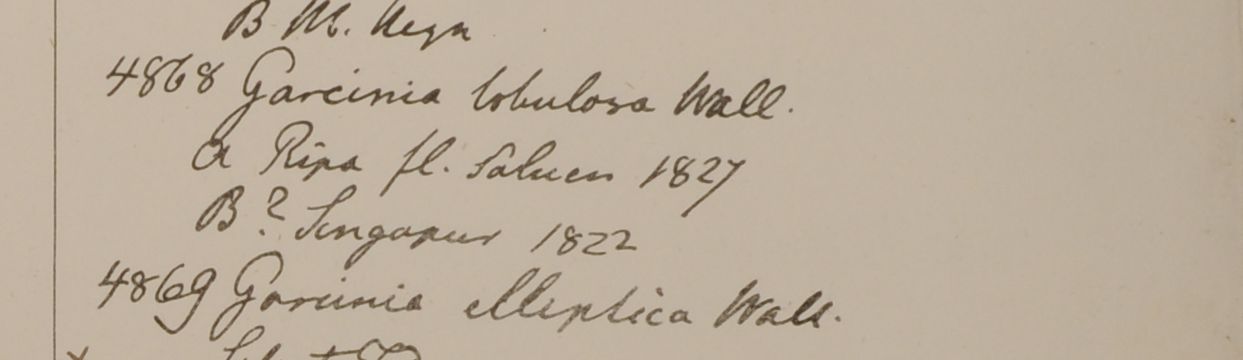 B M. Nega
4868 Garcinia lobulosa Wall.
a Ripa fl. Saluen 1827
B? Singapur 1822
4869 Garcinia elliptica Wall.